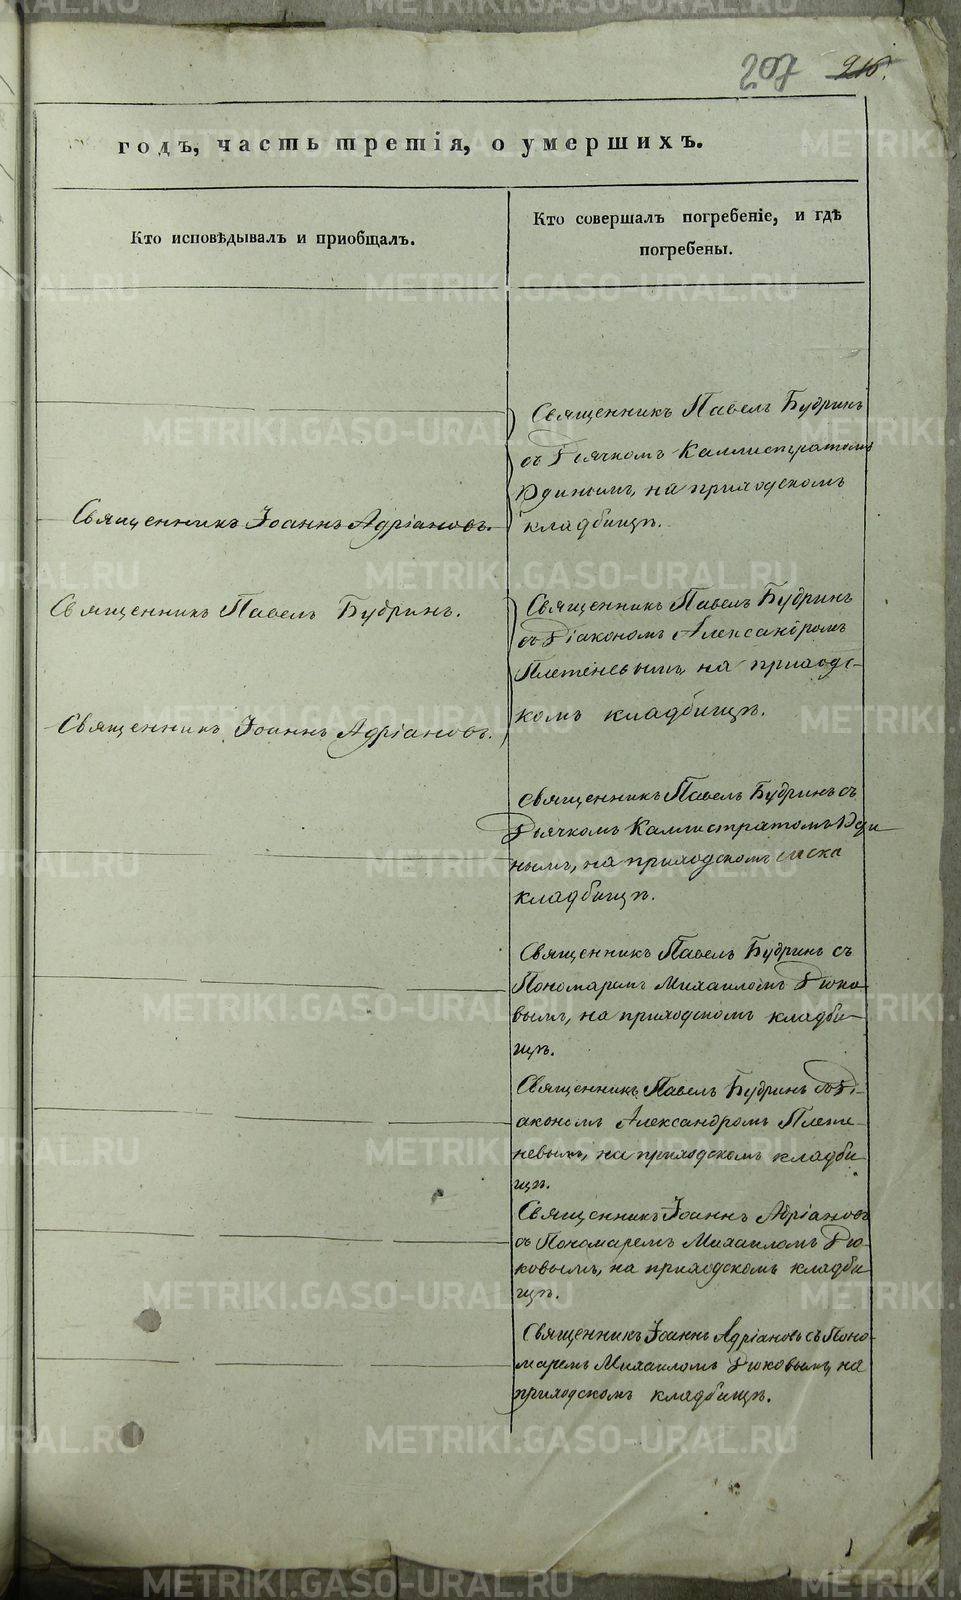 207 216.
годъ, часть третія, о умершихъ.
Кто исповѣдывалъ и приобщалъ.
Кто совершалъ погребеніе, и гдѣ
погребены.
Священникъ Павелъ Будринъ
съ Дьячкомъ Каллистратомъ
Удинымъ, на приходскомъ
кладбищѣ.
Священникъ Іоаннъ Адріановъ.
Священникъ Павелъ Будринъ.
Священникъ Павелъ Будринъ
съ Діакономъ Александромъ
Плетеневымъ, на приходс-
комъ кладбищѣ.
Священникъ Іоаннъ Адріановъ.
Священникъ Павелъ Будринъ съ
Дьячкомъ Каллистратомъ Уди
нымъ, на приходскомъ
кладбищѣ.
Священникъ Павелъ Будринъ съ
Пономаремъ Михаиломъ Дюко-
вымъ, на приходскомъ кладби-
щѣ.
Священникъ Павелъ Будринъ съ Ді-
акономъ Александромъ Плете-
невымъ, на приходскомъ кладби
щѣ.
Священникъ Іоаннъ Адріановъ
съ Пономаремъ Михаиломъ Дю-
ковымъ, на приходскомъ кладби
щѣ.
Священникъ Іоаннъ Адріановъ съ Поно-
маремъ Михаиломъ Дюковымъ, на
приходскомъ кладбищѣ.
METRIKI.GASO-URAL.RU